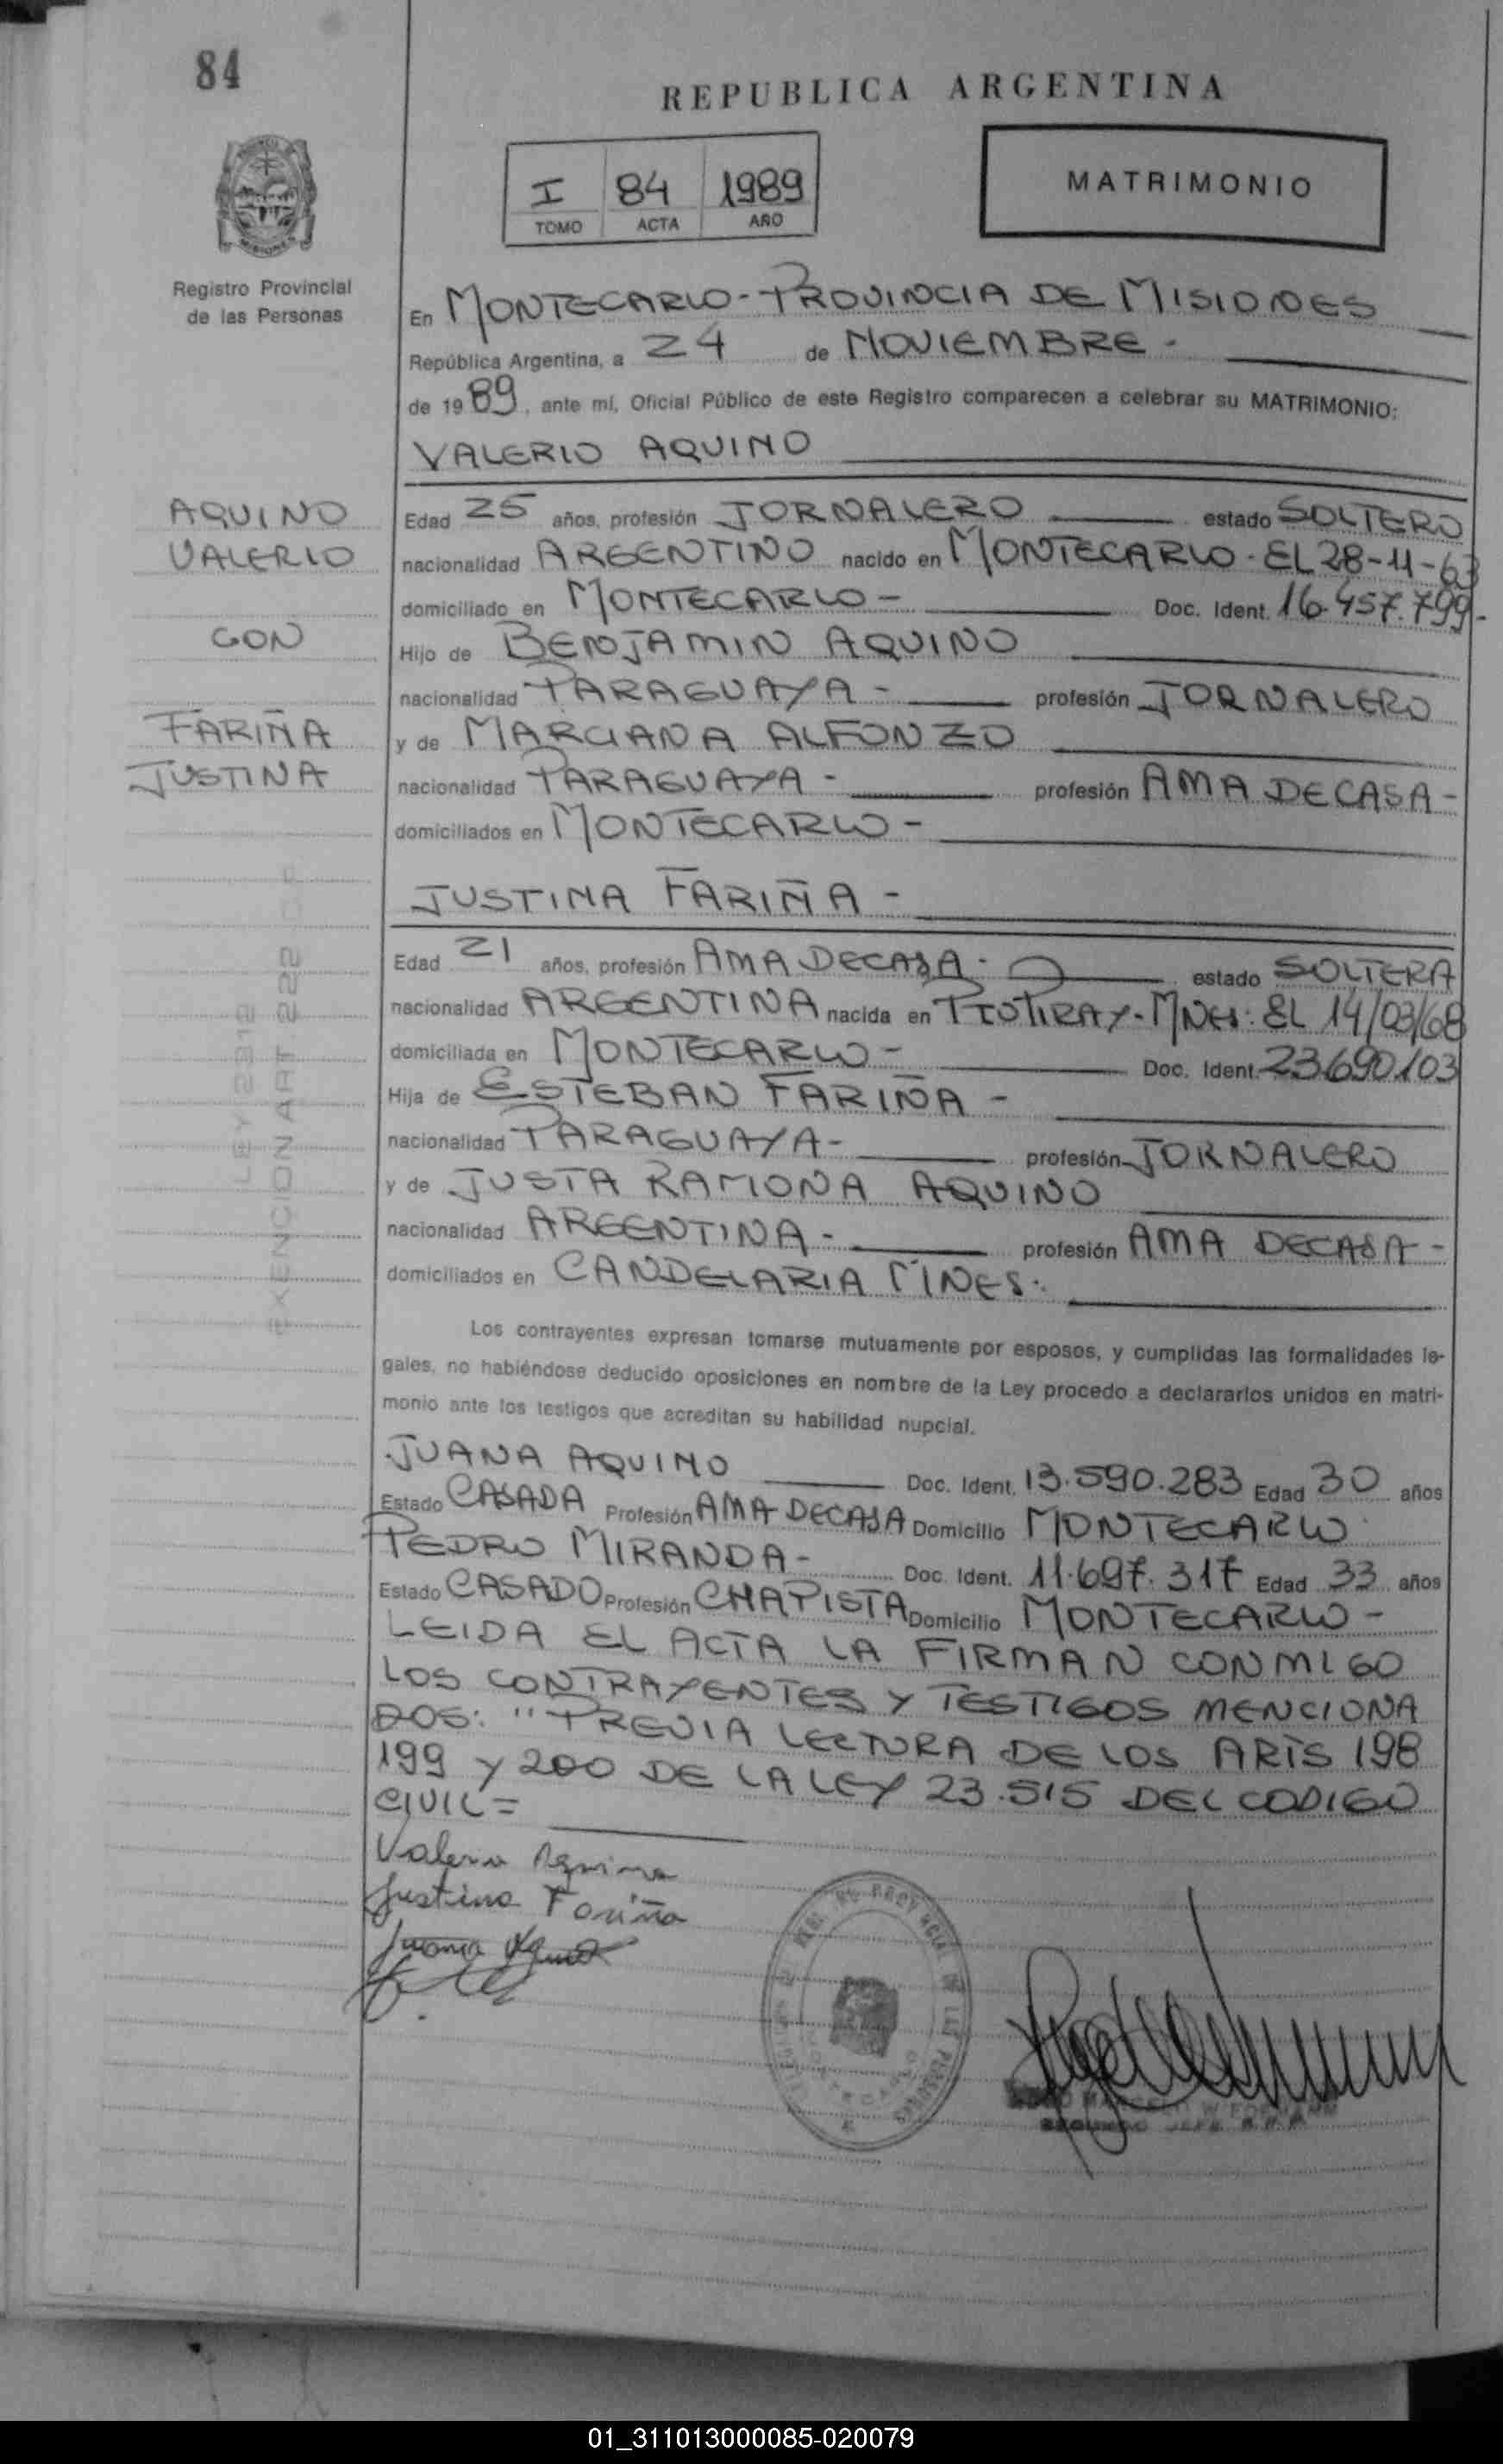 84
REPUBLICA ARGENTINA
I 84 1989
TOMO ACTA AÑO
MATRIMONIO
MISIONES
Registro Provincial
de las Personas
En MONTECARLO - PROVINCIA DE MISIONES
República Argentina, a 24 de NOVIEMBRE -
de 1989, ante mí, Oficial Público de este Registro comparecen a celebrar su MATRIMONIO:
VALERIO AQUINO
AQUINO
VALERIO
CON
FARIÑA
JUSTINA
Edad 25 años, profesión JORNALERO estado SOLTERO
nacionalidad ARGENTINO nacido en MONTECARLO - EL 28-11-63
domiciliado en MONTECARLO - Doc. Ident. 16.457.799-
Hijo de BENJAMIN AQUINO
nacionalidad PARAGUAYA - profesión JORNALERO
y de MARCIANA ALFONZO
nacionalidad PARAGUAYA - profesión AMA DE CASA -
domiciliados en MONTECARLO -
JUSTINA FARIÑA -
Edad 21 años, profesión AMA DE CASA - estado SOLTERA
nacionalidad ARGENTINA nacida en PTO PIRAY - MNES: EL 14/03/68
domiciliada en MONTECARLO - Doc. Ident. 23.690.103
Hija de ESTEBAN FARIÑA -
nacionalidad PARAGUAYA - profesión JORNALERO
y de JUSTA RAMONA AQUINO
nacionalidad ARGENTINA - profesión AMA DE CASA -
domiciliados en CANDELARIA MNES.
LEY 2312
EXENCION ART. 222
Los contrayentes expresan tomarse mutuamente por esposos, y cumplidas las formalidades le-
gales, no habiéndose deducido oposiciones en nombre de la Ley procedo a declararlos unidos en matri-
monio ante los testigos que acreditan su habilidad nupcial.
JUANA AQUINO Doc. Ident. 13.590.283 Edad 30 años
Estado CASADA Profesión AMA DE CASA Domicilio MONTECARLO
PEDRO MIRANDA - Doc. Ident. 11.697.317 Edad 33 años
Estado CASADO Profesión CHAPISTA Domicilio MONTECARLO -
LEIDA EL ACTA LA FIRMAN CONMIGO
LOS CONTRAYENTES Y TESTIGOS MENCIONA
DOS: "PREVIA LECTURA DE LOS ARTS 198
199 Y 200 DE LA LEY 23.515 DEL CODIGO
CIVIL =
Valerio Aquino
Justina Fariña
Juana Aquino
SEGUNDO JEFE R.P.P.
01_311013000085-020079